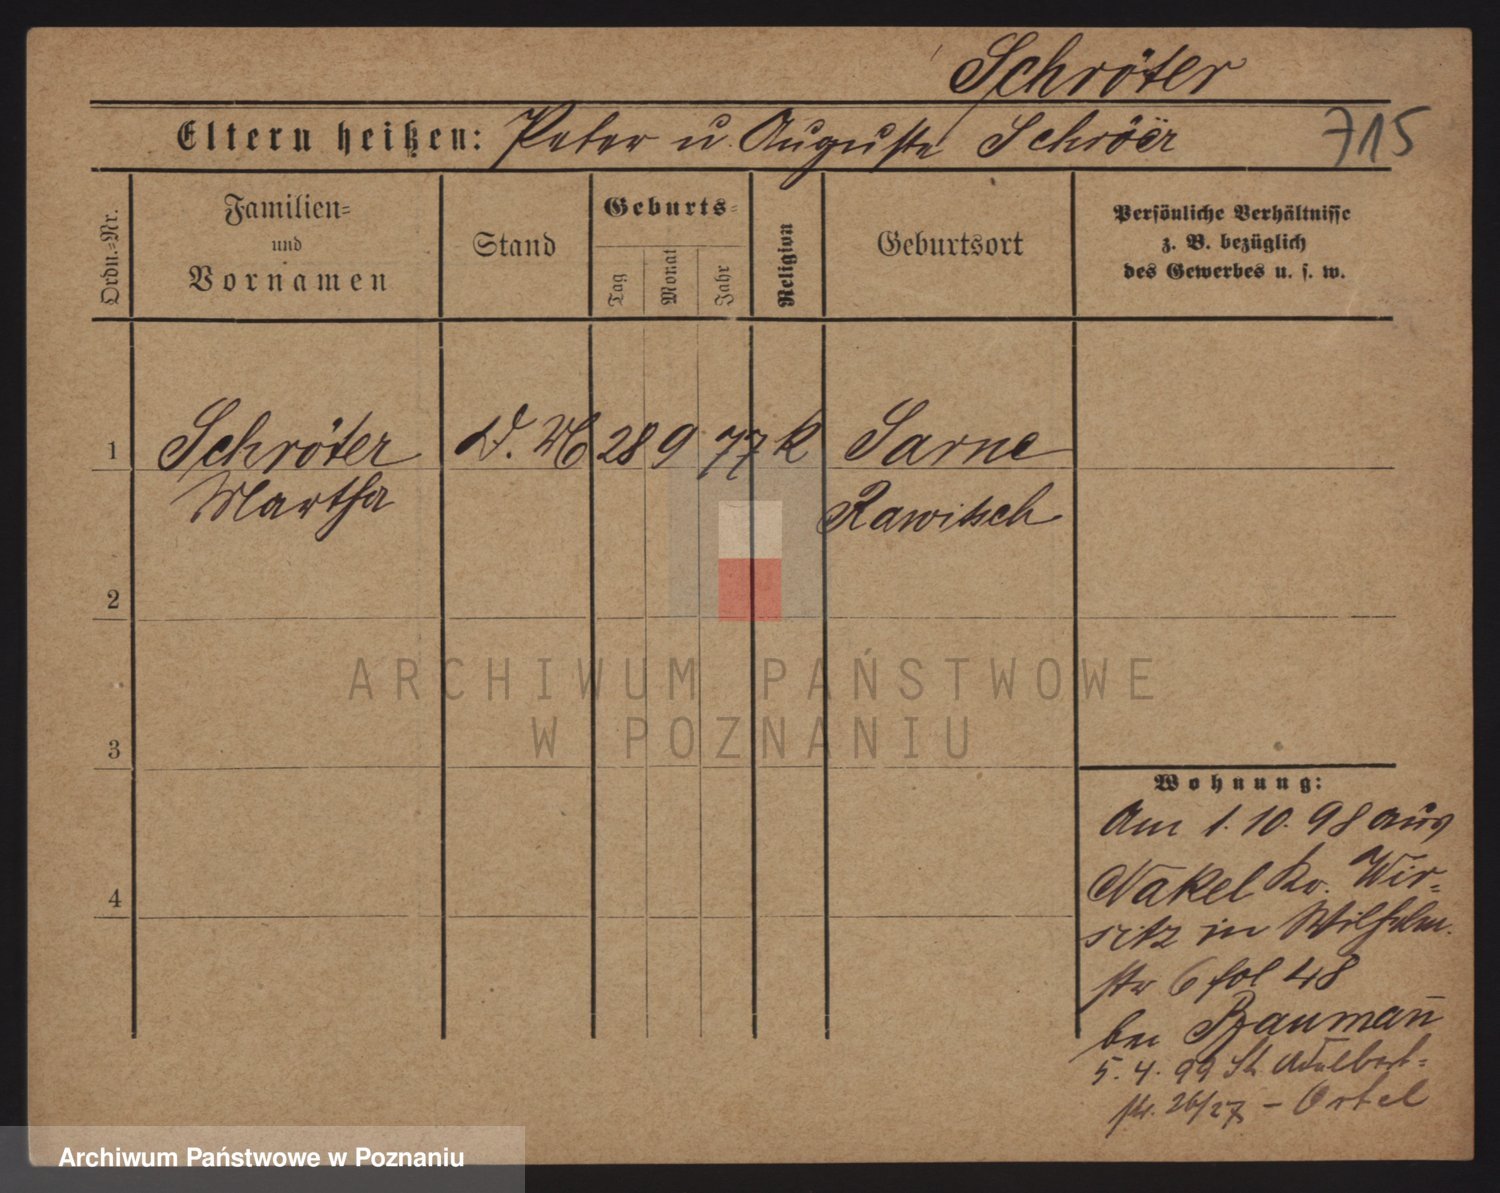 Schröter
Eltern heißen: Peter u. Auguste Schröer
715
Ordn.=Nr.
Familien=
und
Vornamen
Stand
Geburts=
Tag
Monat
Jahr
Religion
Geburtsort
Persönliche Verhältnisse
z. B. bezüglich
des Gewerbes u. s. w.
1 Schröter D. M 28 9 77 k Sarne
Martha Rawitsch
2
3
4
ARCHIWUM PAŃSTWOWE
W POZNANIU
Wohnung:
Am 1. 10. 98 aus
Nakel Kr. Wir=
sitz in Wilhelm.
str 6 fol 48
bei Baumann
5. 4. 99 St. Adalbert=
str. 26/27 – Ortel
Archiwum Państwowe w Poznaniu